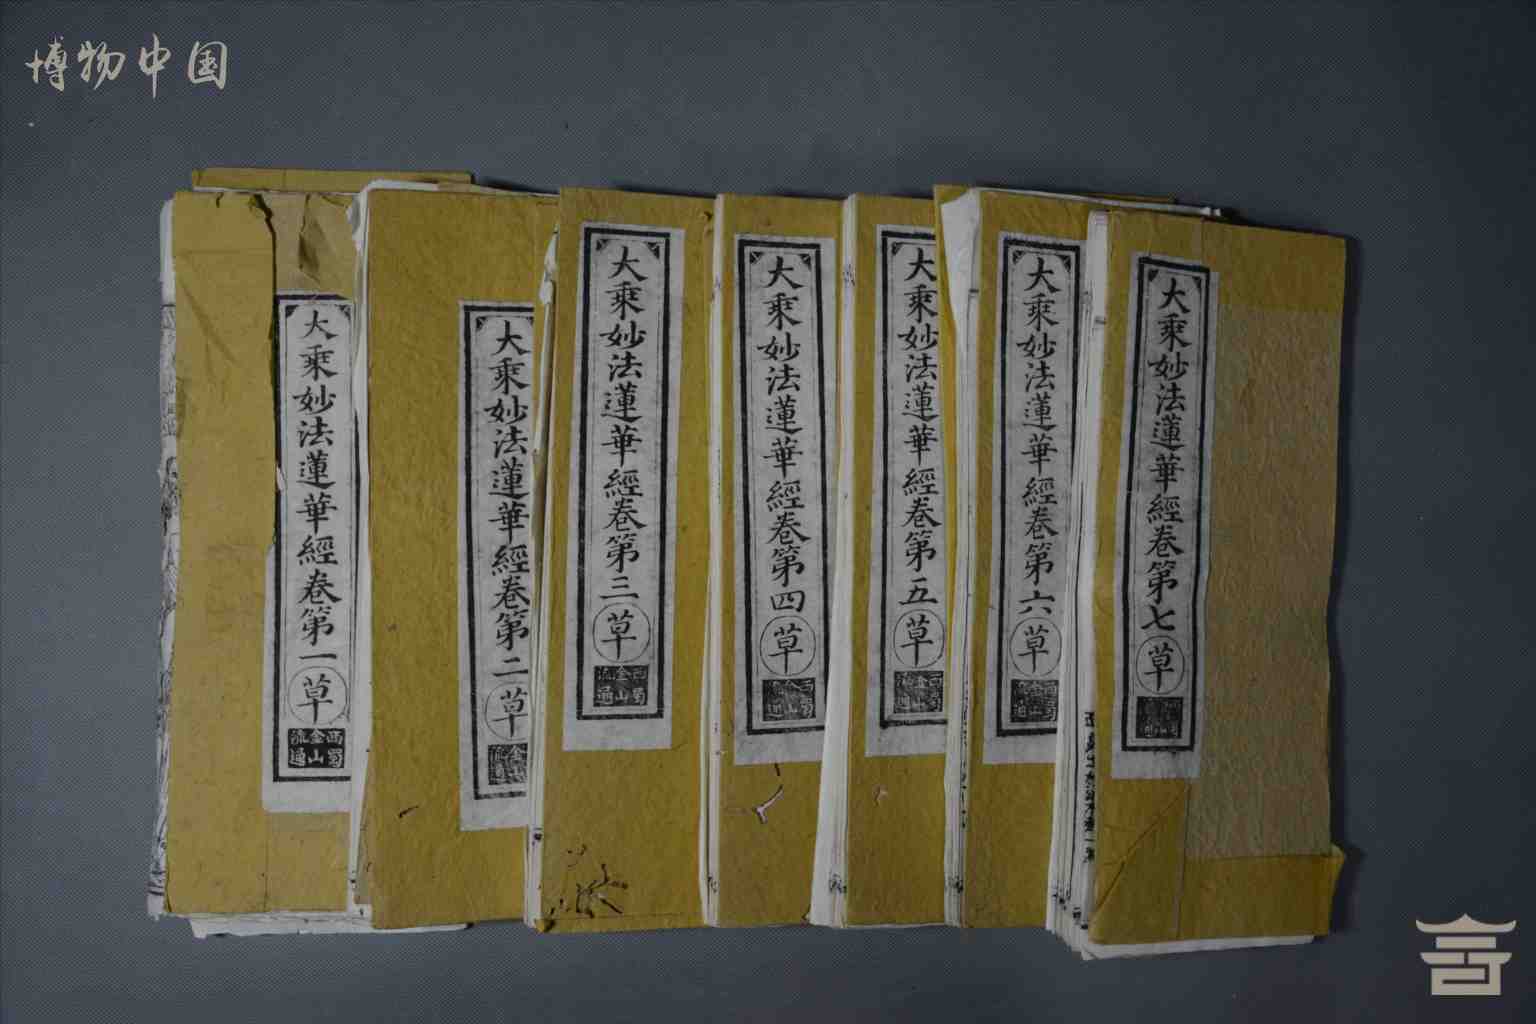 博物中国
大乘妙法蓮華經卷第一草
西蜀金山流通
大乘妙法蓮華經卷第二草
大乘妙法蓮華經卷第三草
西蜀金山流通
大乘妙法蓮華經卷第四草
大乘妙法蓮華經卷第五草
大乘妙法蓮華經卷第六草
大乘妙法蓮華經卷第七草